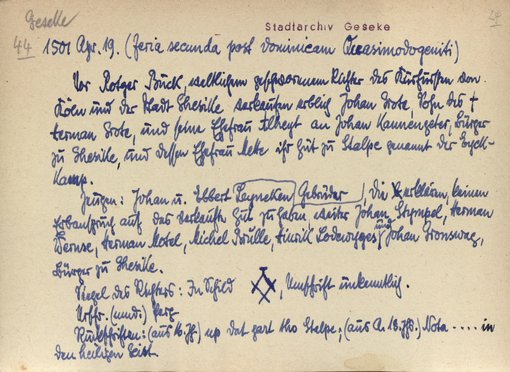 Geseke
Stadtarchiv Geseke
44 1501 Apr. 19. (feria secunda post dominicam Quasimodogeniti)
Vor Rotger Buck, weltlichem geschworenem Richter des Kurfürsten von
Köln und der Stadt Ghesike verkaufen erblich Johan Grote, Sohn des †
Herman Grote, und seine Ehefrau Alheyt an Johan Kannengeter, Bürger
zu Ghesike, und dessen Ehefrau Mette ihr Gut zu Stalpe genannt der
Kamp.
Zeugen: Johan u. Ebbert Leyneken Gebrüder, die erklären, keinen
Erbanspruch auf das verkaufte Gut zu haben, weiter Johan Stympel, Herman
Herman Motel, Michel Hinrik und Johan
Bürger zu Ghesike.
Siegel des Richters: In Schild , Umschrift unkenntlich.
Urschr. (mnd.) Perg.
Rückschriften: (aus 16. Jh.) up dat gart tho Stalpe; (aus A. 18. Jhd.) Nota .... in
den heiligen Geist.